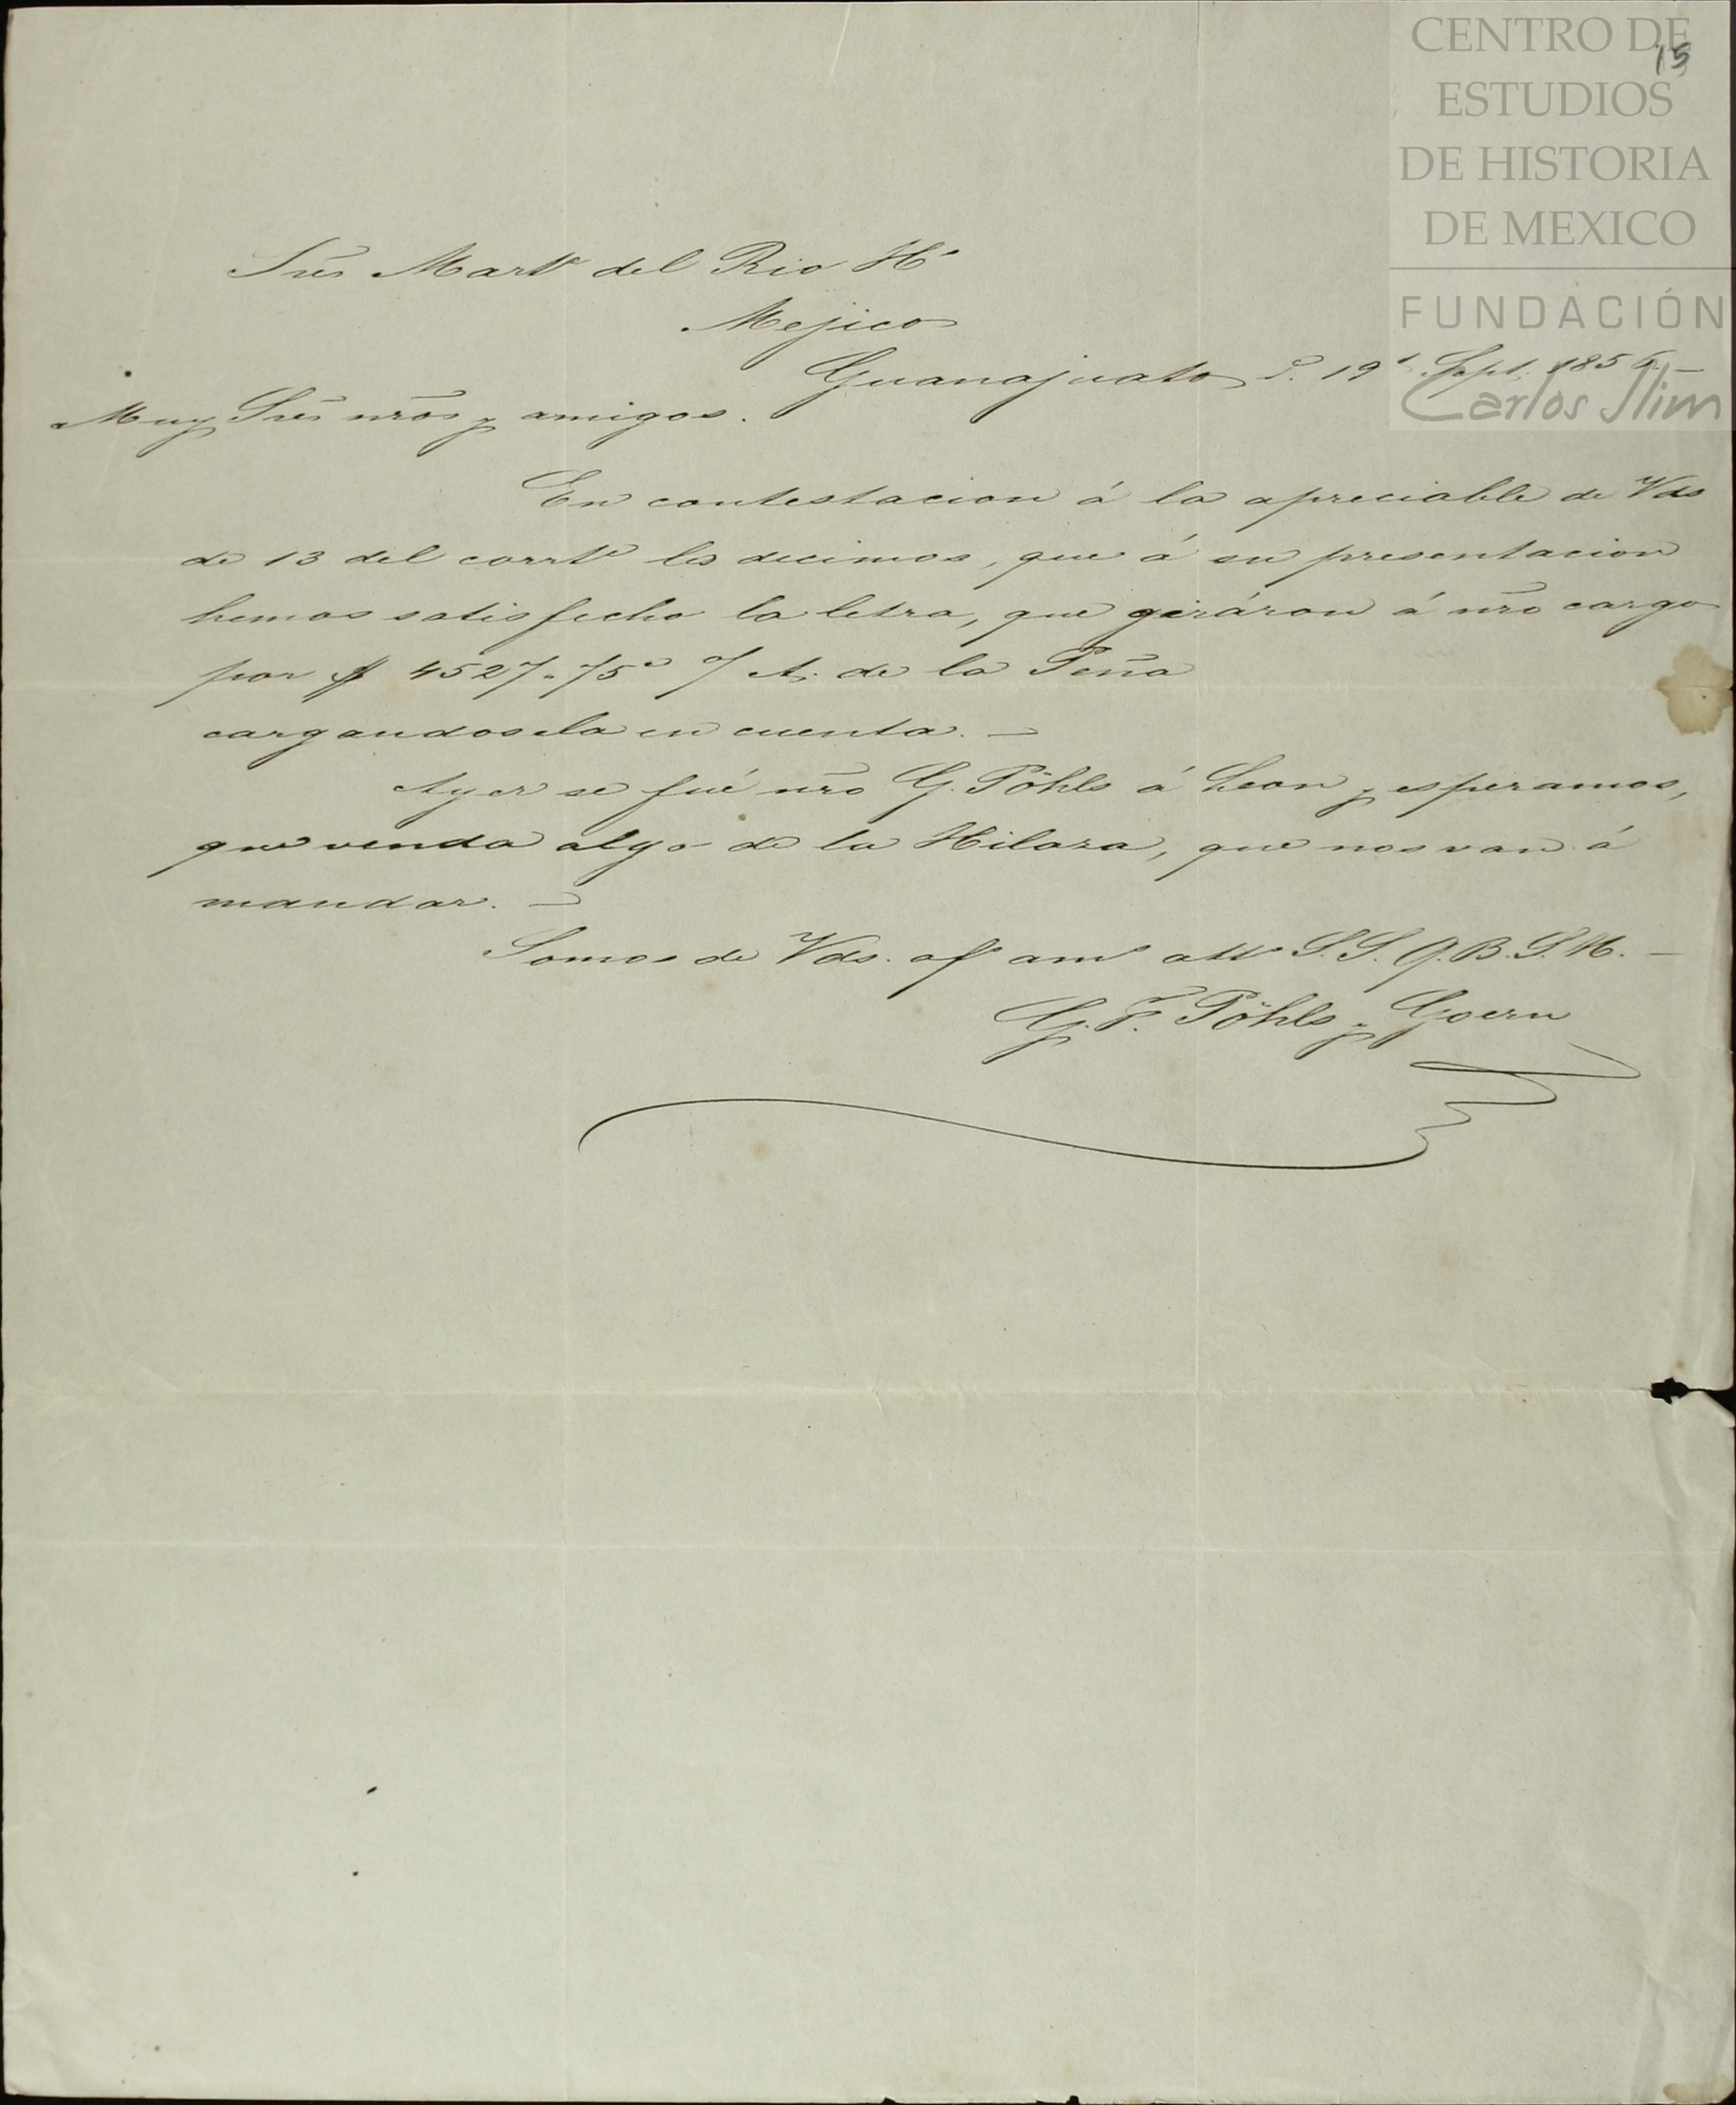 CENTRO DE
ESTUDIOS
DE HISTORIA
DE MEXICO
FUNDACIÓN
Carlos Slim
15
Sres Martz del Rio Hs
Mejico
Guanajuato d. 19 Sept. 185
Muy Sres nros y amigos.
En contestacion á la apreciable de Vds
de 13 del corrte les decimos, que á su presentacion
hemos satisfecho la letra, que giráron á nro cargo
por $ 4527.75c o/ A. de la Peña
cargandosela en cuenta. —
Ayer se fué nro G. Pöhls á Leon y esperamos,
que venda algo de la Hilaza, que nos van á
mandar. —
Somos de Vds. afs ams atts S.S. Q.B.S.M. —
G. F. Pöhls y Goern